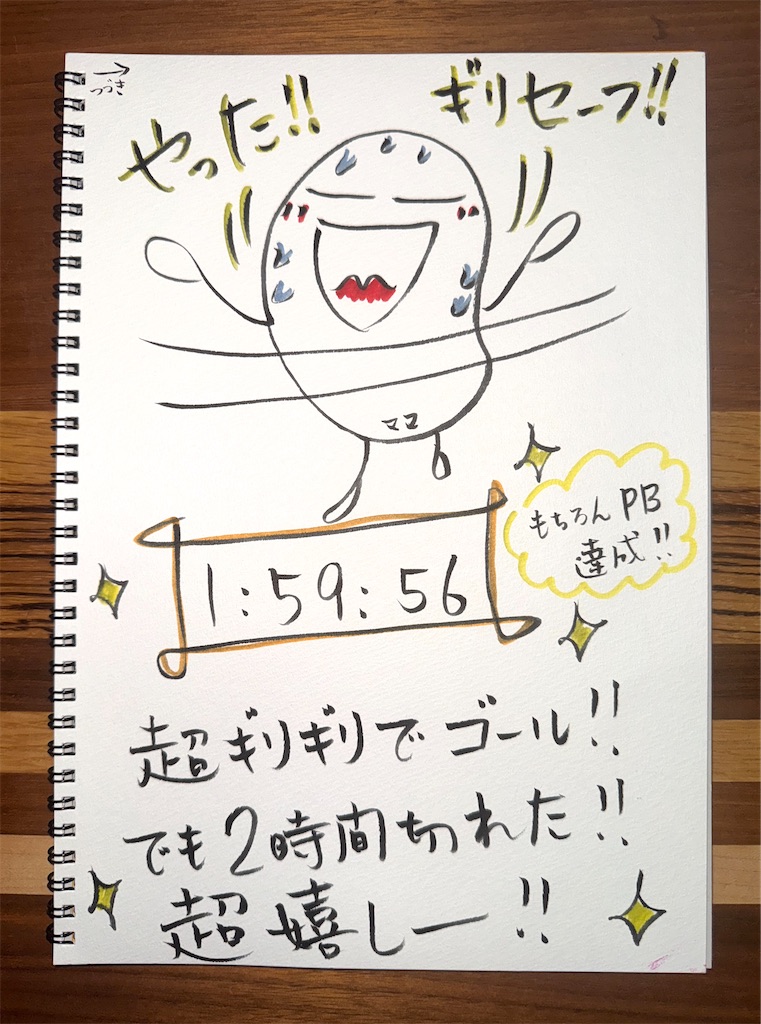 →
つづき
やった!!
ギリセーフ!!
ママ
1:59:56
もちろんPB
達成!!
超ギリギリでゴール!!
でも2時間切れた!!
超嬉しー!!